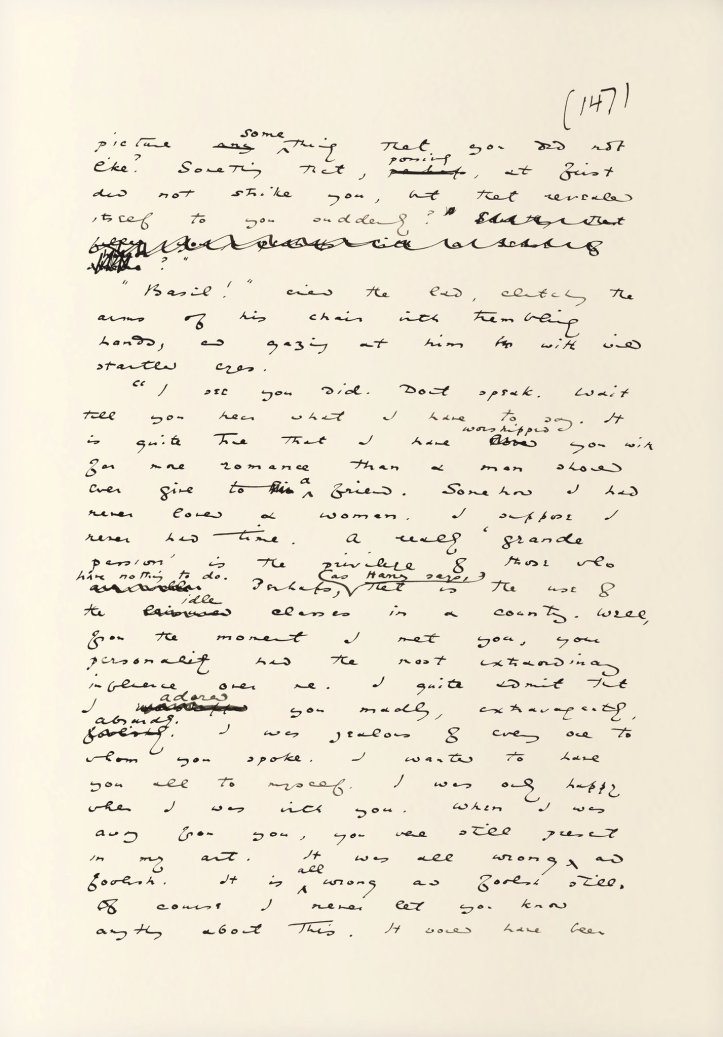 (147)
some
picture any thing that you did not
like? Something that, perhaps, at first
possing
did not strike you, but that revealed
itself to you suddenly?"
? "
"Basil!" cried the lad, clutching the
arms of his chair with trembling
hands, and gazing at him with wild
startled eyes.
"I see you did. Dont speak. Wait
till you hear what I have to say. It
worshipped
is quite true that I have loved you with
far more romance than a man should
a
ever give to his friend. Somehow I had
never loved a woman. I suppose I
never had time. A really 'grande
passion' is the privilege of those who
have nothing to do. Perhaps, (as Harry says,) that is the use of
idle
the leisured classes in a country. Well,
from the moment I met you, your
personality had the most extraordinary
influence over me. I quite admit that
adored
I you madly, extravagantly,
absurdly.
foolishly. I was jealous of every one to
whom you spoke. I wanted to have
you all to myself. I was only happy
when I was with you. When I was
away from you, you were still present
in my art. It was all wrong and
all
foolish. It is wrong and foolish still.
Of course I never let you know
anything about this. It would have been